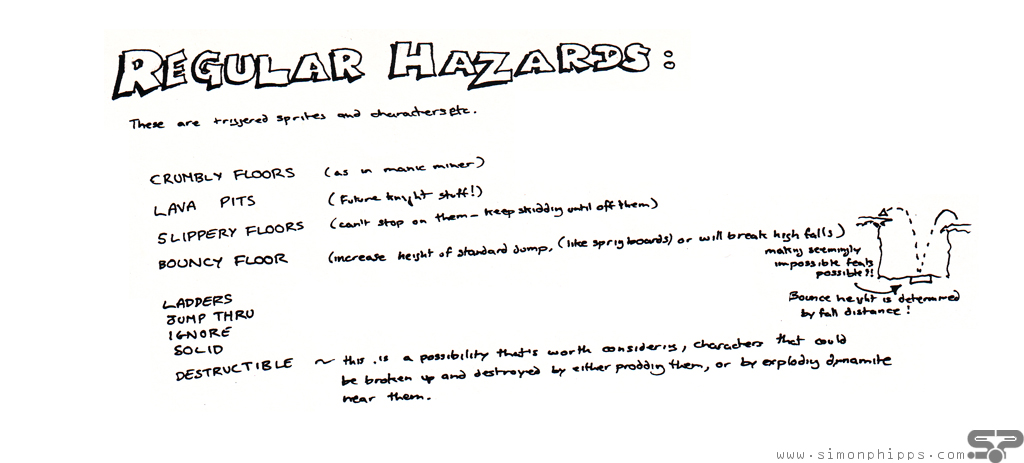 REGULAR HAZARDS:
These are triggered sprites and characters etc.
CRUMBLY FLOORS (as in manic miner)
LAVA PITS (Future knight stuff!)
SLIPPERY FLOORS (can't stop on them - keep skidding until off them)
BOUNCY FLOOR (increase height of standard jump, (like sprigboards) or will break high falls)
making seemingly
impossible feats
possible?!
Bounce height is determined
by fall distance!
LADDERS
JUMP THRU
IGNORE
SOLID
DESTRUCTIBLE ~ this is a possibility that's worth considering, characters that could
be broken up and destroyed by either prodding them, or by exploding dynamite
near them.
www.simonphipps.com